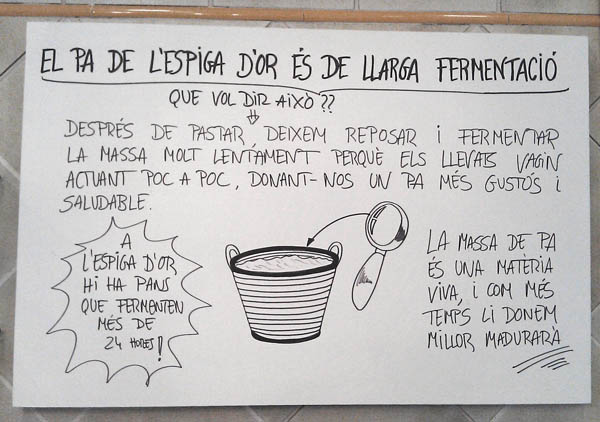 EL PA DE L'ESPIGA D'OR ÉS DE LLARGA FERMENTACIÓ
QUE VOL DIR AIXÒ??
DESPRÉS DE PASTAR, DEIXEM REPOSAR I FERMENTAR
LA MASSA MOLT LENTAMENT PERQUÈ ELS LLEVATS VAGIN
ACTUANT POC A POC, DONANT-NOS UN PA MÉS GUSTÓS I
SALUDABLE.
A
L'ESPIGA D'OR
HI HA PANS
QUE FERMENTEN
MÉS DE
24 HORES!
LA MASSA DE PA
ÉS UNA MATÈRIA
VIVA, I COM MÉS
TEMPS LI DONEM
MILLOR MADURARÀ